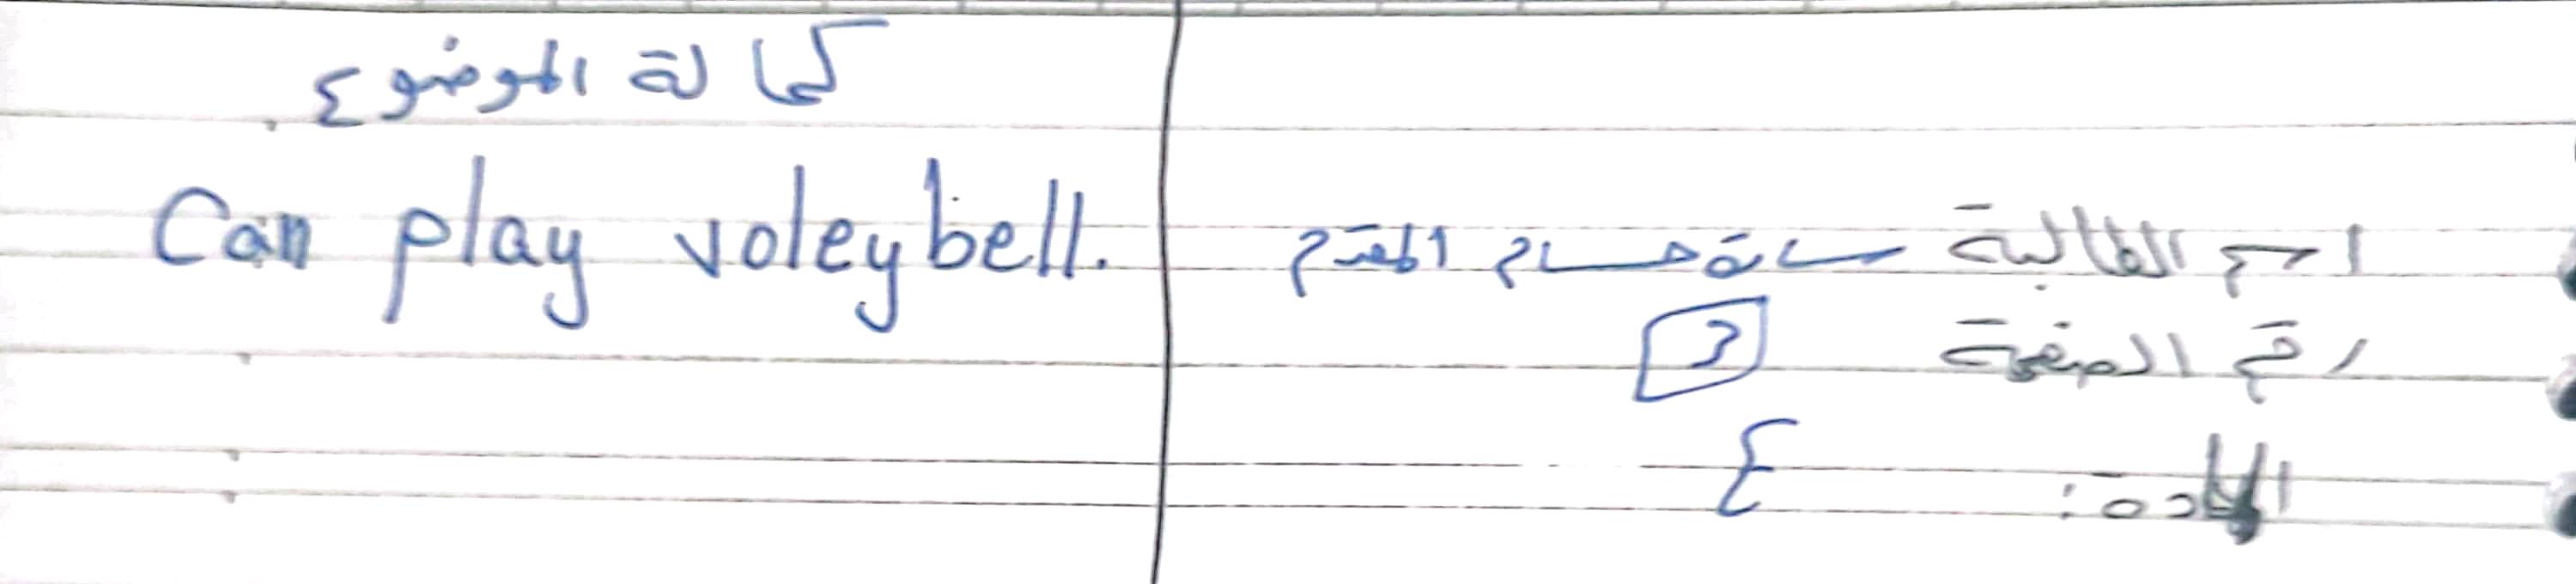 كمالة الموضوع
Can play voleybell.
اسم الطالبة سارة حسام
رقم الصفحة 3
المادة: E